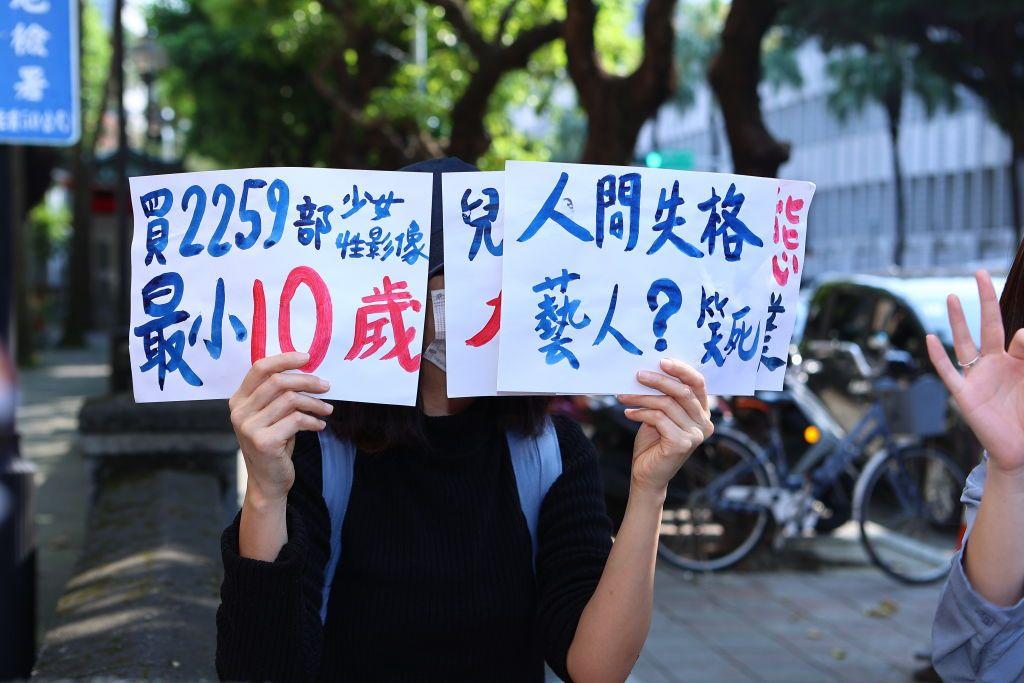 檢署
買2259部少女
性影像
最小10歲
兒
人間失格
藝人?笑死